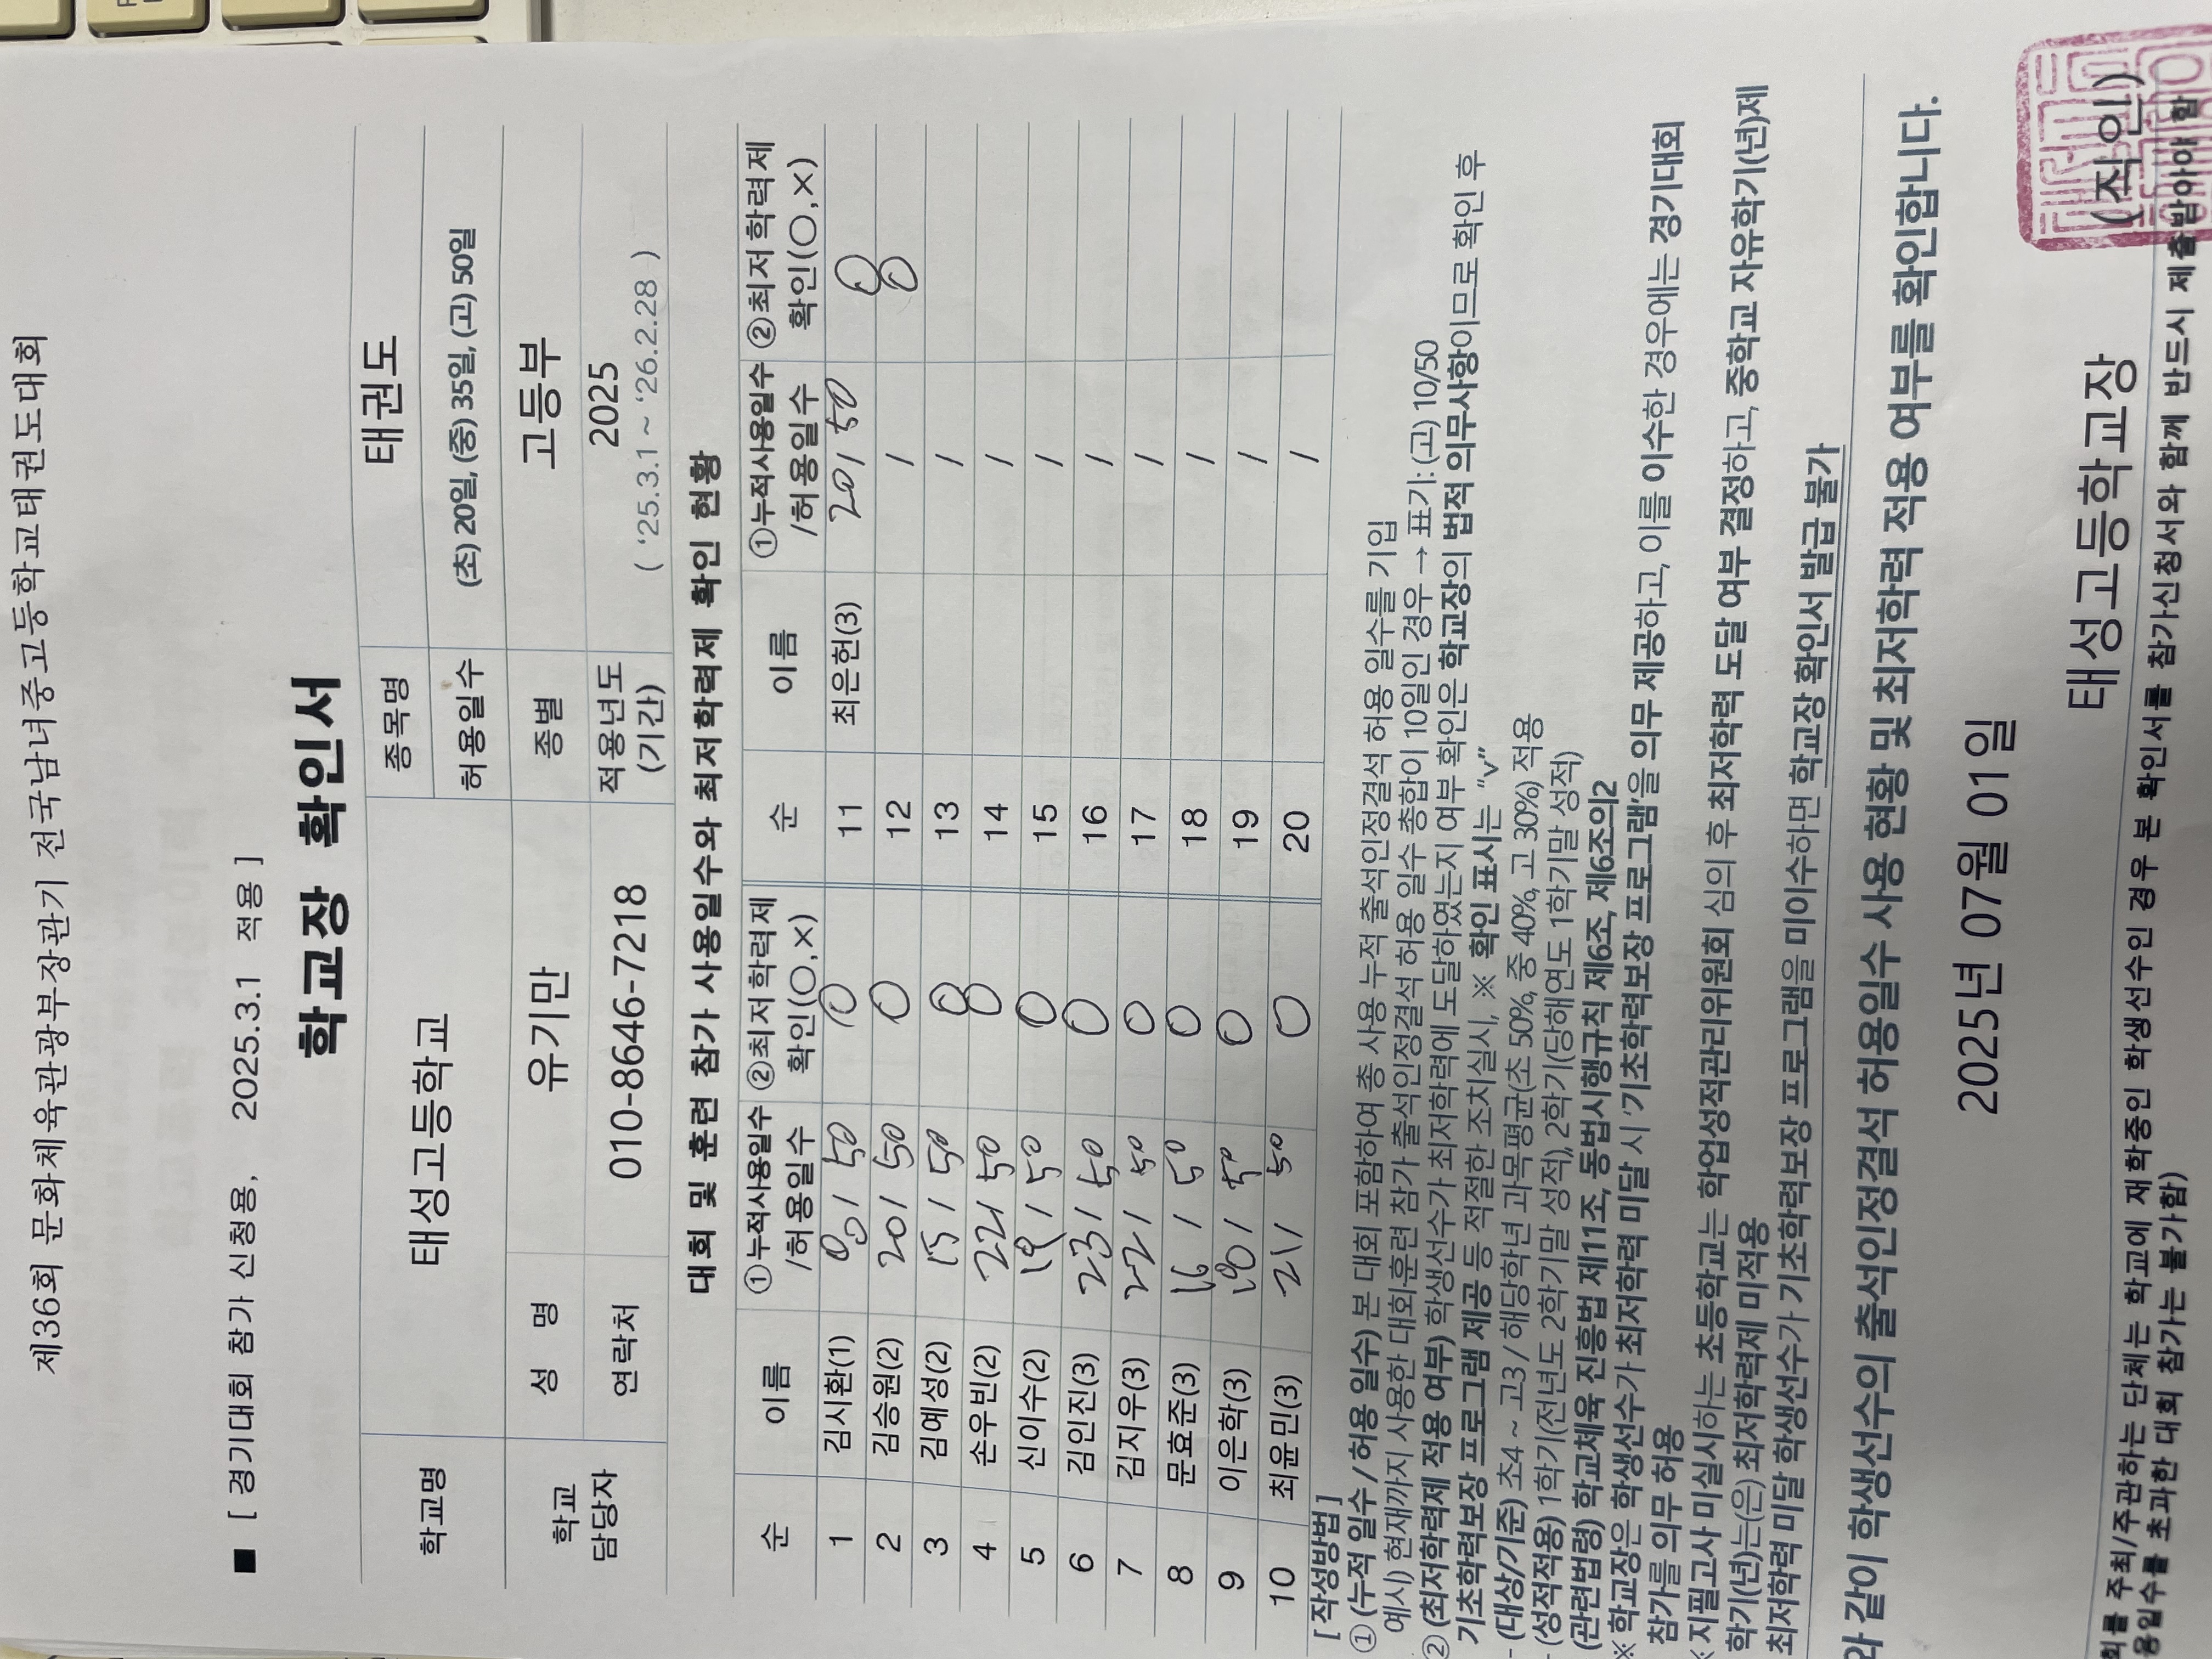 제36회 문화체육관광부장관기 전국남녀중고등학교태권도대회
■ [ 경기대회 참가 신청용, 2025.3.1 적용 ]
학교장 확인서
학교명 태성고등학교 종목명 태권도
허용일수 (초) 20일, (중) 35일, (고) 50일
학교 담당자 성 명 유기만 종별 고등부
연락처 010-8646-7218 적용년도 (기간) 2025 ( ‘25.3.1 ~ ‘26.2.28 )
대회 및 훈련 참가 사용일수와 최저학력제 확인 현황
순 이름 ①누적사용일수 /허용일수 ②최저학력제 확인(○,×) 순 이름 ①누적사용일수 /허용일수 ②최저학력제 확인(○,×)
1 김시환(1) / 50 ○ 11 최은헌(3) 20 / 50 ○
2 김승원(2) 20 / 50 ○ 12 / ○
3 김예성(2) 15 / 50 ○ 13 /
4 손우빈(2) 22 / 50 ○ 14 /
5 신이수(2) 19 / 50 ○ 15 /
6 김인진(3) 23 / 50 ○ 16 /
7 김지우(3) 22 / 50 ○ 17 /
8 문효준(3) 16 / 50 ○ 18 /
9 이은학(3) / 50 ○ 19 /
10 최윤민(3) 21 / 50 ○ 20 /
[ 작성방법 ]
① (누적 일수 / 허용 일수) 본 대회 포함하여 총 사용 누적 출석인정결석 허용 일수를 기입
예시) 현재까지 사용한 대회·훈련 참가 출석인정결석 허용 일수 총합이 10일인 경우 → 표기 : (고) 10/50
② (최저학력제 적용 여부) 학생선수가 최저학력에 도달하였는지 여부 확인은 학교장의 법적 의무사항이므로 확인 후
기초학력보장 프로그램 제공 등 적절한 조치실시, ※ 확인 표시는 “v”
- (대상/기준) 초4 ~ 고3 / 해당학년 과목평균(초 50%, 중 40%, 고 30%) 적용
- (성적적용) 1학기(전년도 2학기말 성적), 2학기(당해연도 1학기말 성적)
(관련법령) 학교체육 진흥법 제11조, 동법시행규칙 제6조, 제6조의2
※ 학교장은 학생선수가 최저학력 미달 시 ‘기초학력보장 프로그램’을 의무 제공하고, 이를 이수한 경우에는 경기대회
참가를 의무 허용
※ 지필고사 미실시하는 초등학교는 학업성적관리위원회 심의 후 최저학력 도달 여부 결정하고, 중학교 자유학기(년)제
학기(년)는(은) 최저학력제 미적용
최저학력 미달 학생선수가 기초학력보장 프로그램을 미이수하면 학교장 확인서 발급 불가
와 같이 학생선수의 출석인정결석 허용일수 사용 현황 및 최저학력 적용 여부를 확인합니다.
2025년 07월 01일
태성고등학교장 (직인)
회를 주최/주관하는 단체는 학교에 재학중인 학생선수인 경우 본 확인서를 참가신청서와 함께 반드시 제출받아야 함
용일수를 초과한 대회 참가는 불가함)